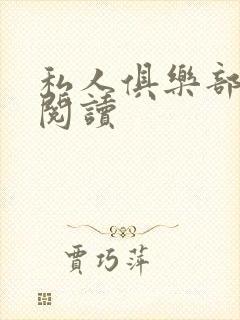 私人俱樂部
閱讀
賈巧萍